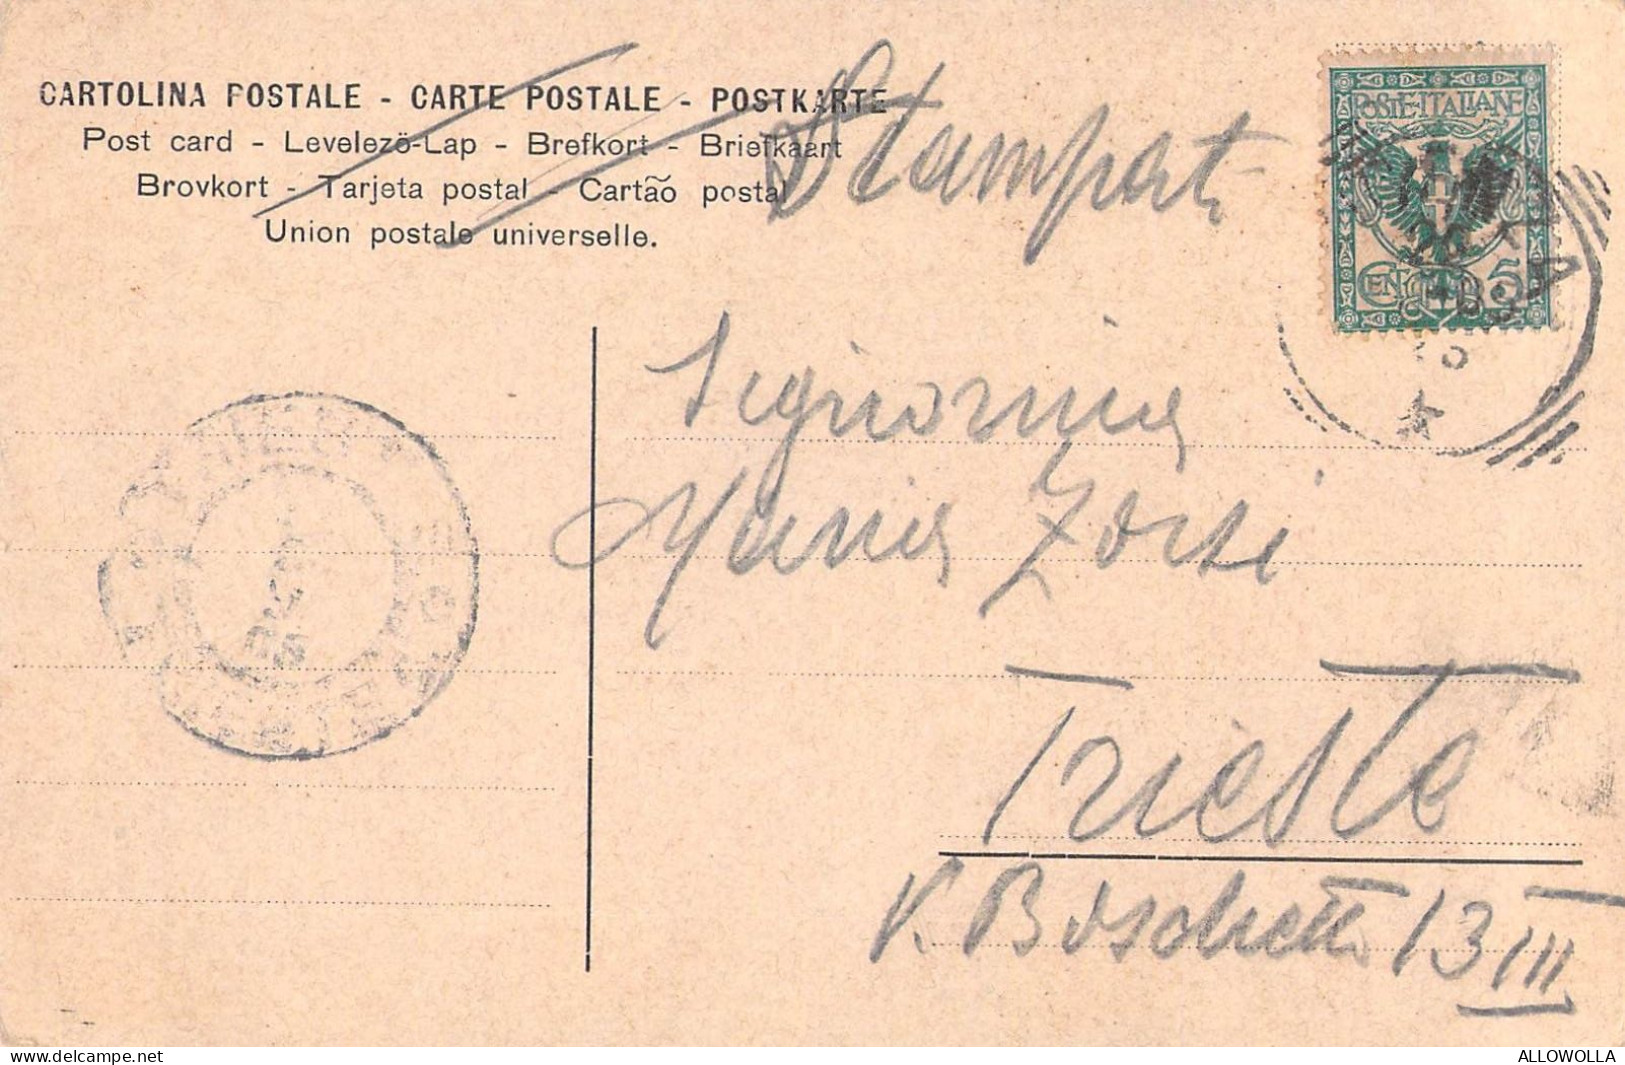 CARTOLINA POSTALE - CARTE POSTALE - POSTKARTE
Post card - Levelezö-Lap - Brefkort - Briefkaart
Brovkort - Tarjeta postal - Cartão postal
Union postale universelle.
Stampat
POSTE·ITALIANE
CENT 5
Signorina
Maria Zorsi
Trieste
V. Boschetto 13 III
https://www.delcampe.net
ALLOWOLLA